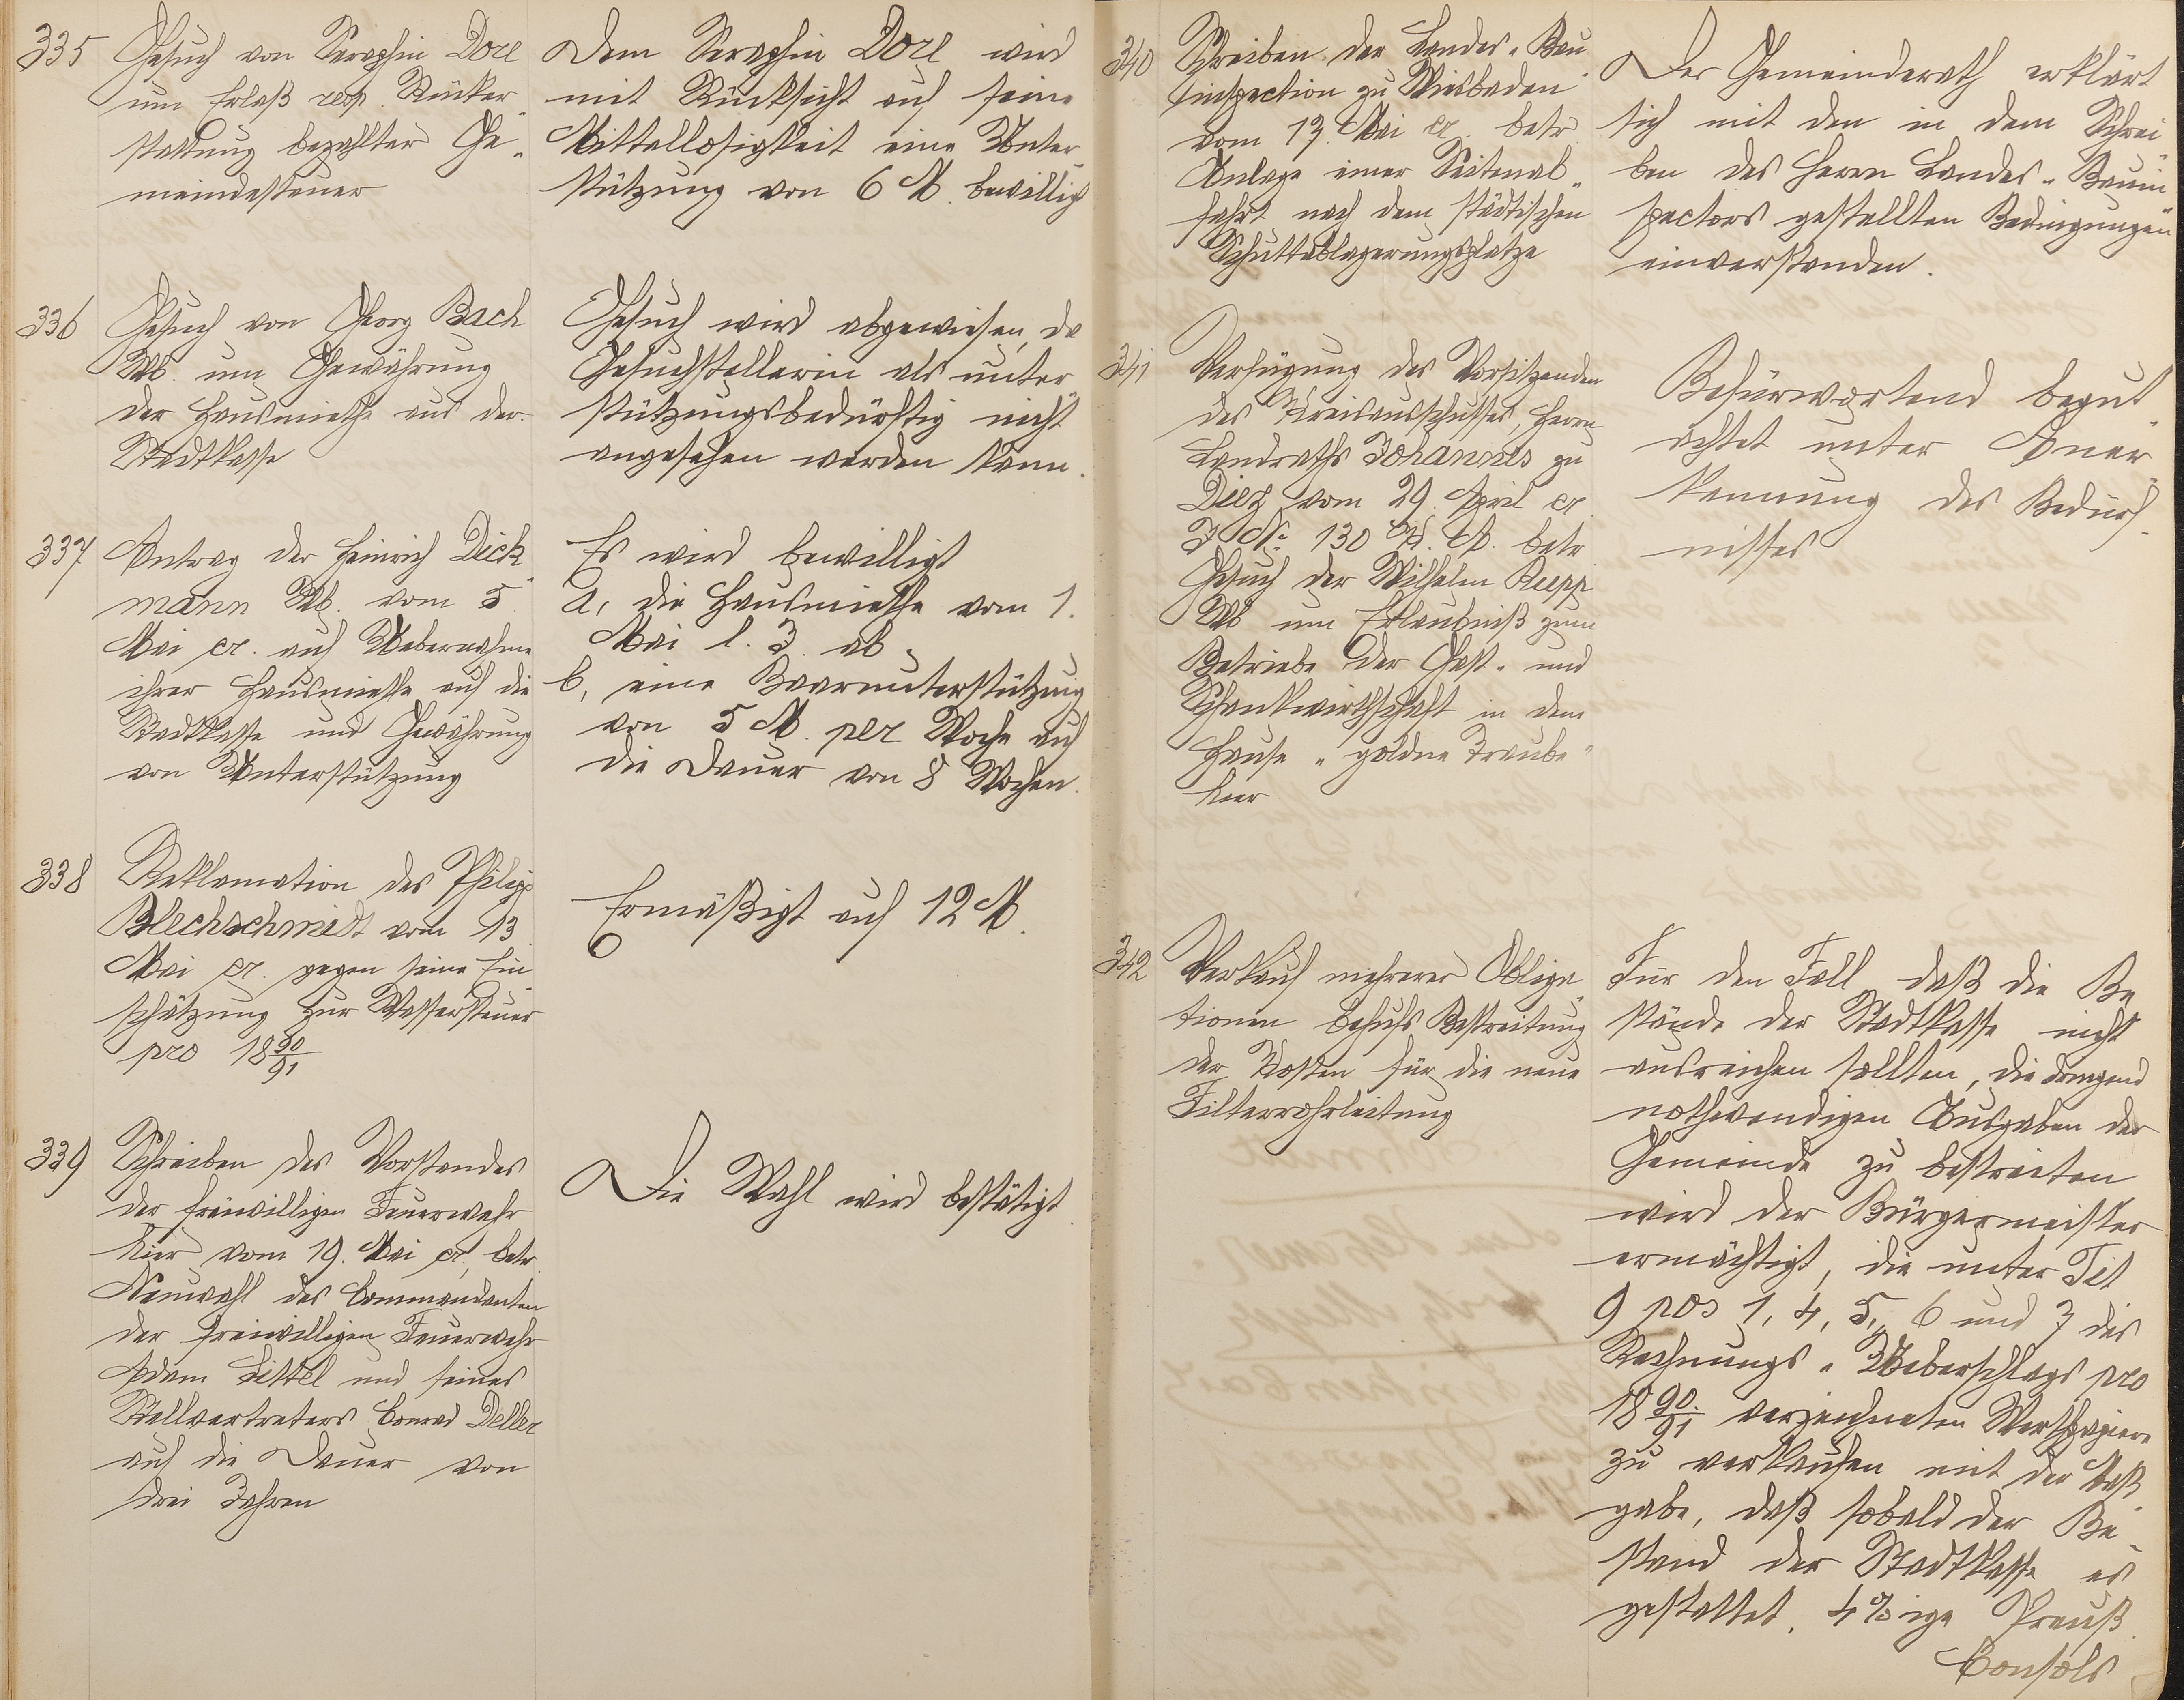 335
Gesuch von Seraphin Dore
um Erlaß resp. Rücker-
stattung bezahlter Ge-
meindesteuer
Dem Seraphin Dore wird
mit Rücksicht auf seine
Mittellosigkeit eine Unter-
stützung von 6 M. bewilligt
336
Gesuch von Georg Bach
Wb. um Gewährung
der Hausmiethe aus der
Stadtkasse
Gesuch wird abgewiesen, da
Gesuchstellerin als unter-
stützungsbedürftig nicht
angesehen werden kann.
337
Antrag der Heinrich Dick-
mann Wb. vom 5.
Mai cr. auf Uebernahme
ihrer Hausmiethe auf die
Stadtkasse und Gewährung
von Unterstützung
Es wird bewilligt
a, die Hausmiethe vom 1.
Mai l. J. ab,
b, eine Baarunterstützung
von 5 M. per Woche auf
die Dauer von 8 Wochen.
338
Reklamation des Philipp
Blechschmidt vom 13.
Mai cr. gegen seine Ein-
schätzung zur Wassersteuer
pro 1890/91
Ermäßigt auf 12 M.
339
Schreiben des Vorstandes
der freiwilligen Feuerwehr
hier vom 19. Mai cr., betr.
Neuwahl des Commandanten
der freiwilligen Feuerwehr
Adam Littel und seines
Stellvertreters Conrad Deller
auf die Dauer von
drei Jahren
Die Wahl wird bestätigt
340
Schreiben der Landes-Bau-
inspection zu Wiesbaden
vom 17. Mai cr. betr.
Anlage einer Seitenab-
fahrt nach dem städtischen
Schuttablagerungsplatze
Der Gemeinderath erklärt
sich mit den in dem Schrei-
ben des Herrn Landes-Bauin-
spectors gestellten Bedingungen
einverstanden.
341
Verfügung des Vorsitzenden
des Kreisausschusses, Herrn
Landraths Johannes zu
Diez vom 29. April cr.
J No. 130 A. betr.
Gesuch der Wilhelm Reepp
Wb um Erlaubniß zum
Betriebe der Gast- und
Schankwirthschaft in dem
Hause "goldne Traube"
hier
Befürwortend begut-
achtet unter Aner-
kennung des Bedürf-
nisses
342
Verkauf mehrerer Obliga-
tionen behufs Bestreitung
der Kosten für die neue
Filterrohrleitung
Für den Fall daß die Be-
stände der Stadtkasse nicht
ausreichen sollten, die dringend
nothwendigen Ausgaben der
Gemeinde zu bestreiten
wird der Bürgermeister
ermächtigt, die unter Tit
9 pos 1, 4, 5, 6 und 7 des
Rechnungs-Ueberschlags pro
1890/91 verzeichneten Werthpapiere
zu verkaufen mit der Maß-
gabe, daß sobald der Be-
stand der Stadtkasse es
gestattet, 4%ige Preuß.
Consols